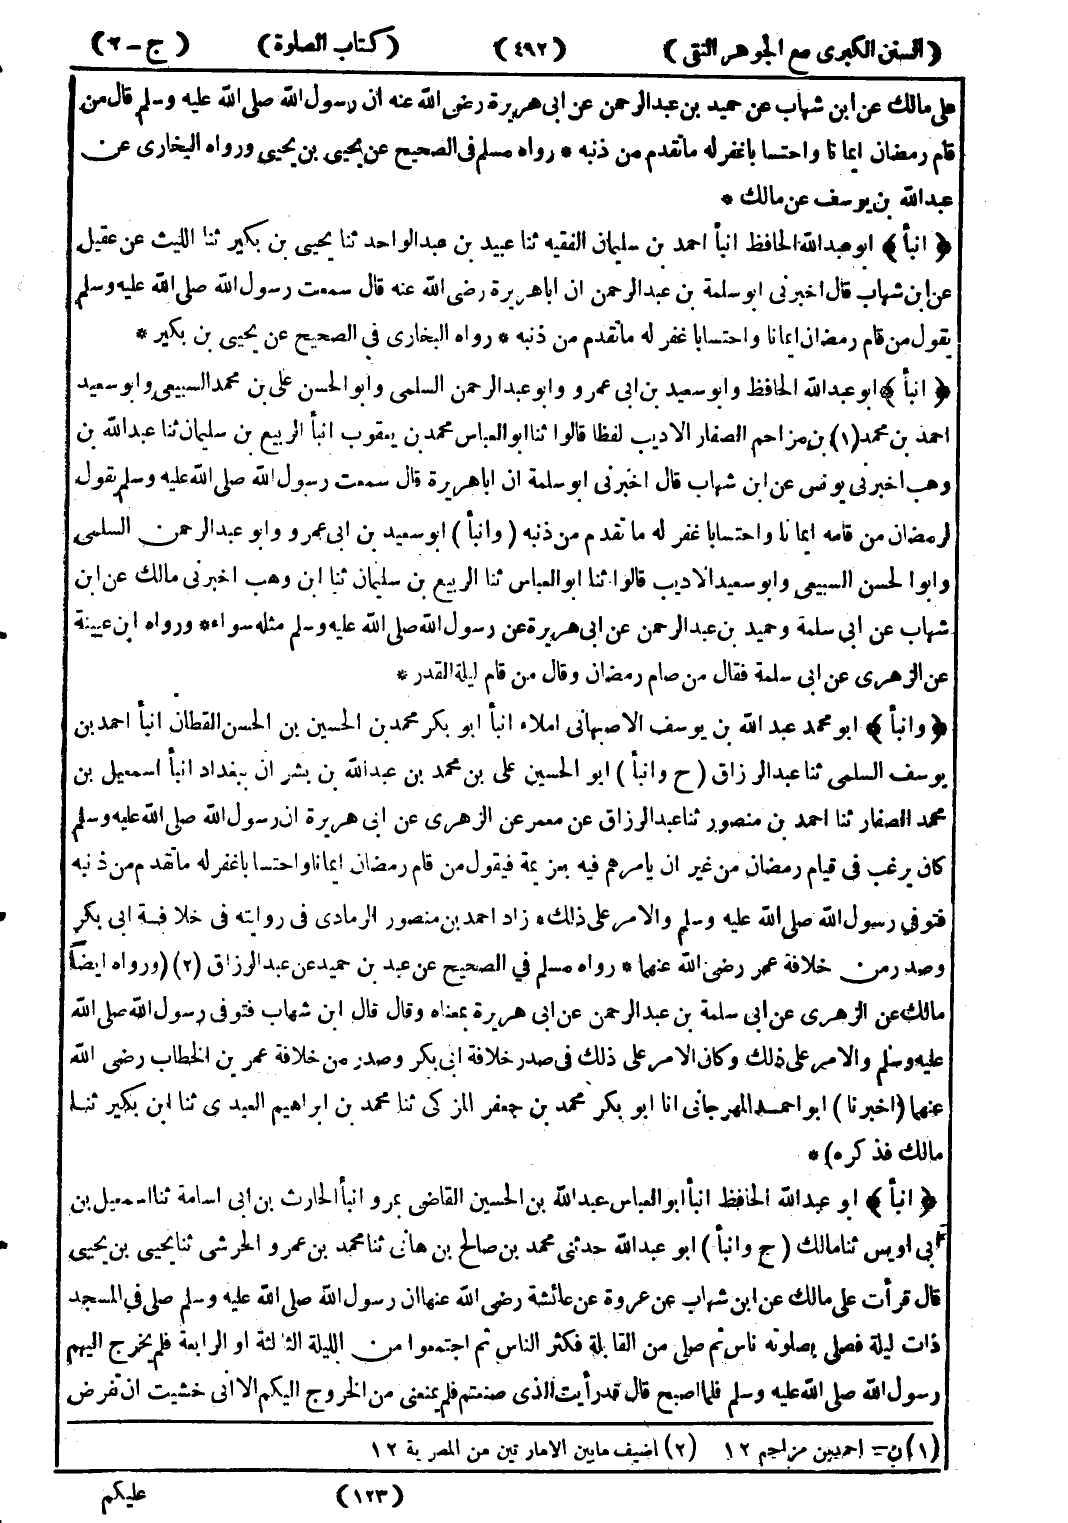 (السنن الكبرى مع الجوهر النقى) (٤٩٢) (كتاب الصلوة) (ج - ٢)
على مالك عن ابن شهاب عن حميد بن عبدالرحمن عن ابى هريرة رضى الله عنه ان رسول الله صلى الله عليه وسلم قال من
قام رمضان ايمانا واحتسابا غفر له ما تقدم من ذنبه * رواه مسلم فى الصحيح عن يحيى بن يحيى ورواه البخارى عن
عبدالله بن يوسف عن مالك *
﴿ انبأ ﴾ ابو عبدالله الحافظ انبأ احمد بن سليمان الفقيه ثنا عبيد بن عبدالواحد ثنا يحيى بن بكير ثنا الليث عن عقيل
عن ابن شهاب قال اخبرنى ابو سلمة بن عبدالرحمن ان اباهريرة رضى الله عنه قال سمعت رسول الله صلى الله عليه وسلم
يقول من قام رمضان ايمانا واحتسابا غفر له ما تقدم من ذنبه * رواه البخارى فى الصحيح عن يحيى بن بكير *
﴿ انبأ ﴾ ابو عبدالله الحافظ وابو سعيد بن ابى عمرو وابو عبدالرحمن السلمى وابو الحسن على بن محمد السبيعى وابو سعيد
احمد بن محمد (١) بن مزاحم الصفار الاديب لفظا قالوا ثنا ابو العباس محمد بن يعقوب انبأ الربيع بن سليمان ثنا عبدالله بن
وهب اخبرنى يونس عن ابن شهاب قال اخبرنى ابو سلمة ان اباهريرة قال سمعت رسول الله صلى الله عليه وسلم يقول
لرمضان من قامه ايمانا واحتسابا غفر له ما تقدم من ذنبه (وانبأ) ابو سعيد بن ابى عمرو وابو عبدالرحمن السلمى
وابو الحسن السبيعى وابو سعيد الاديب قالوا ثنا ابو العباس ثنا الربيع بن سليمان ثنا ابن وهب اخبرنى مالك عن ابن
شهاب عن ابى سلمة وحميد بن عبدالرحمن عن ابى هريرة عن رسول الله صلى الله عليه وسلم مثله سواء * ورواه ابن عيينة
عن الزهرى عن ابى سلمة فقال من صام رمضان وقال من قام ليلة القدر *
﴿ وانبأ ﴾ ابو محمد عبدالله بن يوسف الاصبهانى املاء انبأ ابو بكر محمد بن الحسين بن الحسن القطان انبأ احمد بن
يوسف السلمى ثنا عبدالرزاق (ح وانبأ) ابو الحسين على بن محمد بن عبدالله بن بشران ببغداد انبأ اسمعيل بن
محمد الصفار ثنا احمد بن منصور ثنا عبدالرزاق عن معمر عن الزهرى عن ابى هريرة ان رسول الله صلى الله عليه وسلم
كان يرغب فى قيام رمضان من غير ان يامرهم فيه بعزيمة فيقول من قام رمضان ايمانا واحتسابا غفر له ما تقدم من ذنبه
فتوفي رسول الله صلى الله عليه وسلم والامر على ذلك * زاد احمد بن منصور الرمادى فى روايته فى خلافة ابى بكر
وصدر من خلافة عمر رضى الله عنهما * رواه مسلم فى الصحيح عن عبد بن حميد عن عبدالرزاق (٢) (ورواه ايضا
مالك عن الزهرى عن ابى سلمة بن عبدالرحمن عن ابى هريرة بمعناه وقال قال ابن شهاب فتوفى رسول الله صلى الله
عليه وسلم والامر على ذلك وكان الامر على ذلك فى صدر خلافة ابى بكر وصدر من خلافة عمر بن الخطاب رضى الله
عنهما (اخبرنا) ابو احمد المهرجانى انا ابو بكر محمد بن جعفر المزكى ثنا محمد بن ابراهيم العبدى ثنا ابن بكير ثنا
مالك فذكره) *
﴿ انبأ ﴾ ابو عبدالله الحافظ انبأ ابو العباس عبدالله بن الحسين القاضى بمرو انبأ الحارث بن ابى اسامة ثنا اسمعيل بن
ابى اويس ثنا مالك (ح وانبأ) ابو عبدالله حدثنى محمد بن صالح بن هانى ثنا محمد بن عمرو الحرشى ثنا يحيى بن يحيى
قال قرأت على مالك عن ابن شهاب عن عروة عن عائشة رضى الله عنها ان رسول الله صلى الله عليه وسلم صلى فى المسجد
ذات ليلة فصلى بصلوته ناس ثم صلى من القابلة فكثر الناس ثم اجتمعوا من الليلة الثالثة او الرابعة فلم يخرج اليهم
رسول الله صلى الله عليه وسلم فلما اصبح قال قد رأيت الذى صنعتم فلم يمنعنى من الخروج اليكم الا انى خشيت ان تفرض
(١) ن = احمد بن مزاحم ١٢ (٢) اضيف مابين الامارتين من المصرية ١٢
(١٢٣) عليكم